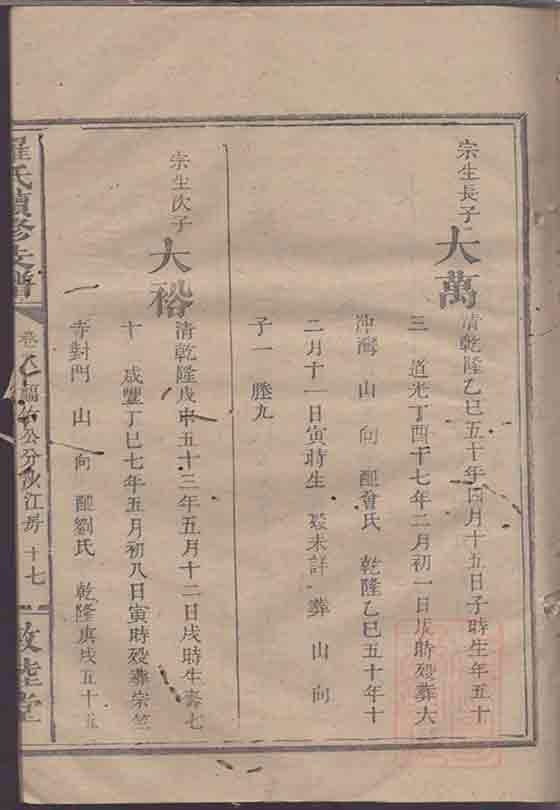 宗生長子 大萬 清乾隆乙巳五十年四月十五日子時生年五十
三 道光丁酉十七年二月初一日戌時殁葬大
冲灣 山 向 配曾氏 乾隆乙巳五十年十
二月十一日寅時生 殁未詳 葬 山 向
子一 勝九
宗生次子 大裕 清乾隆戊申五十三年五月十二日戌時生壽七
十 咸豐丁巳七年五月初八日寅時殁葬宗竺
寺對門 山 向 配劉氏 乾隆庚戌五十五
羅氏續修支譜 卷 公分 江房 十七 敦睦堂